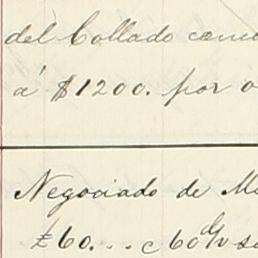 del Collado
á $1200. por
Negociado de
£60... c 60